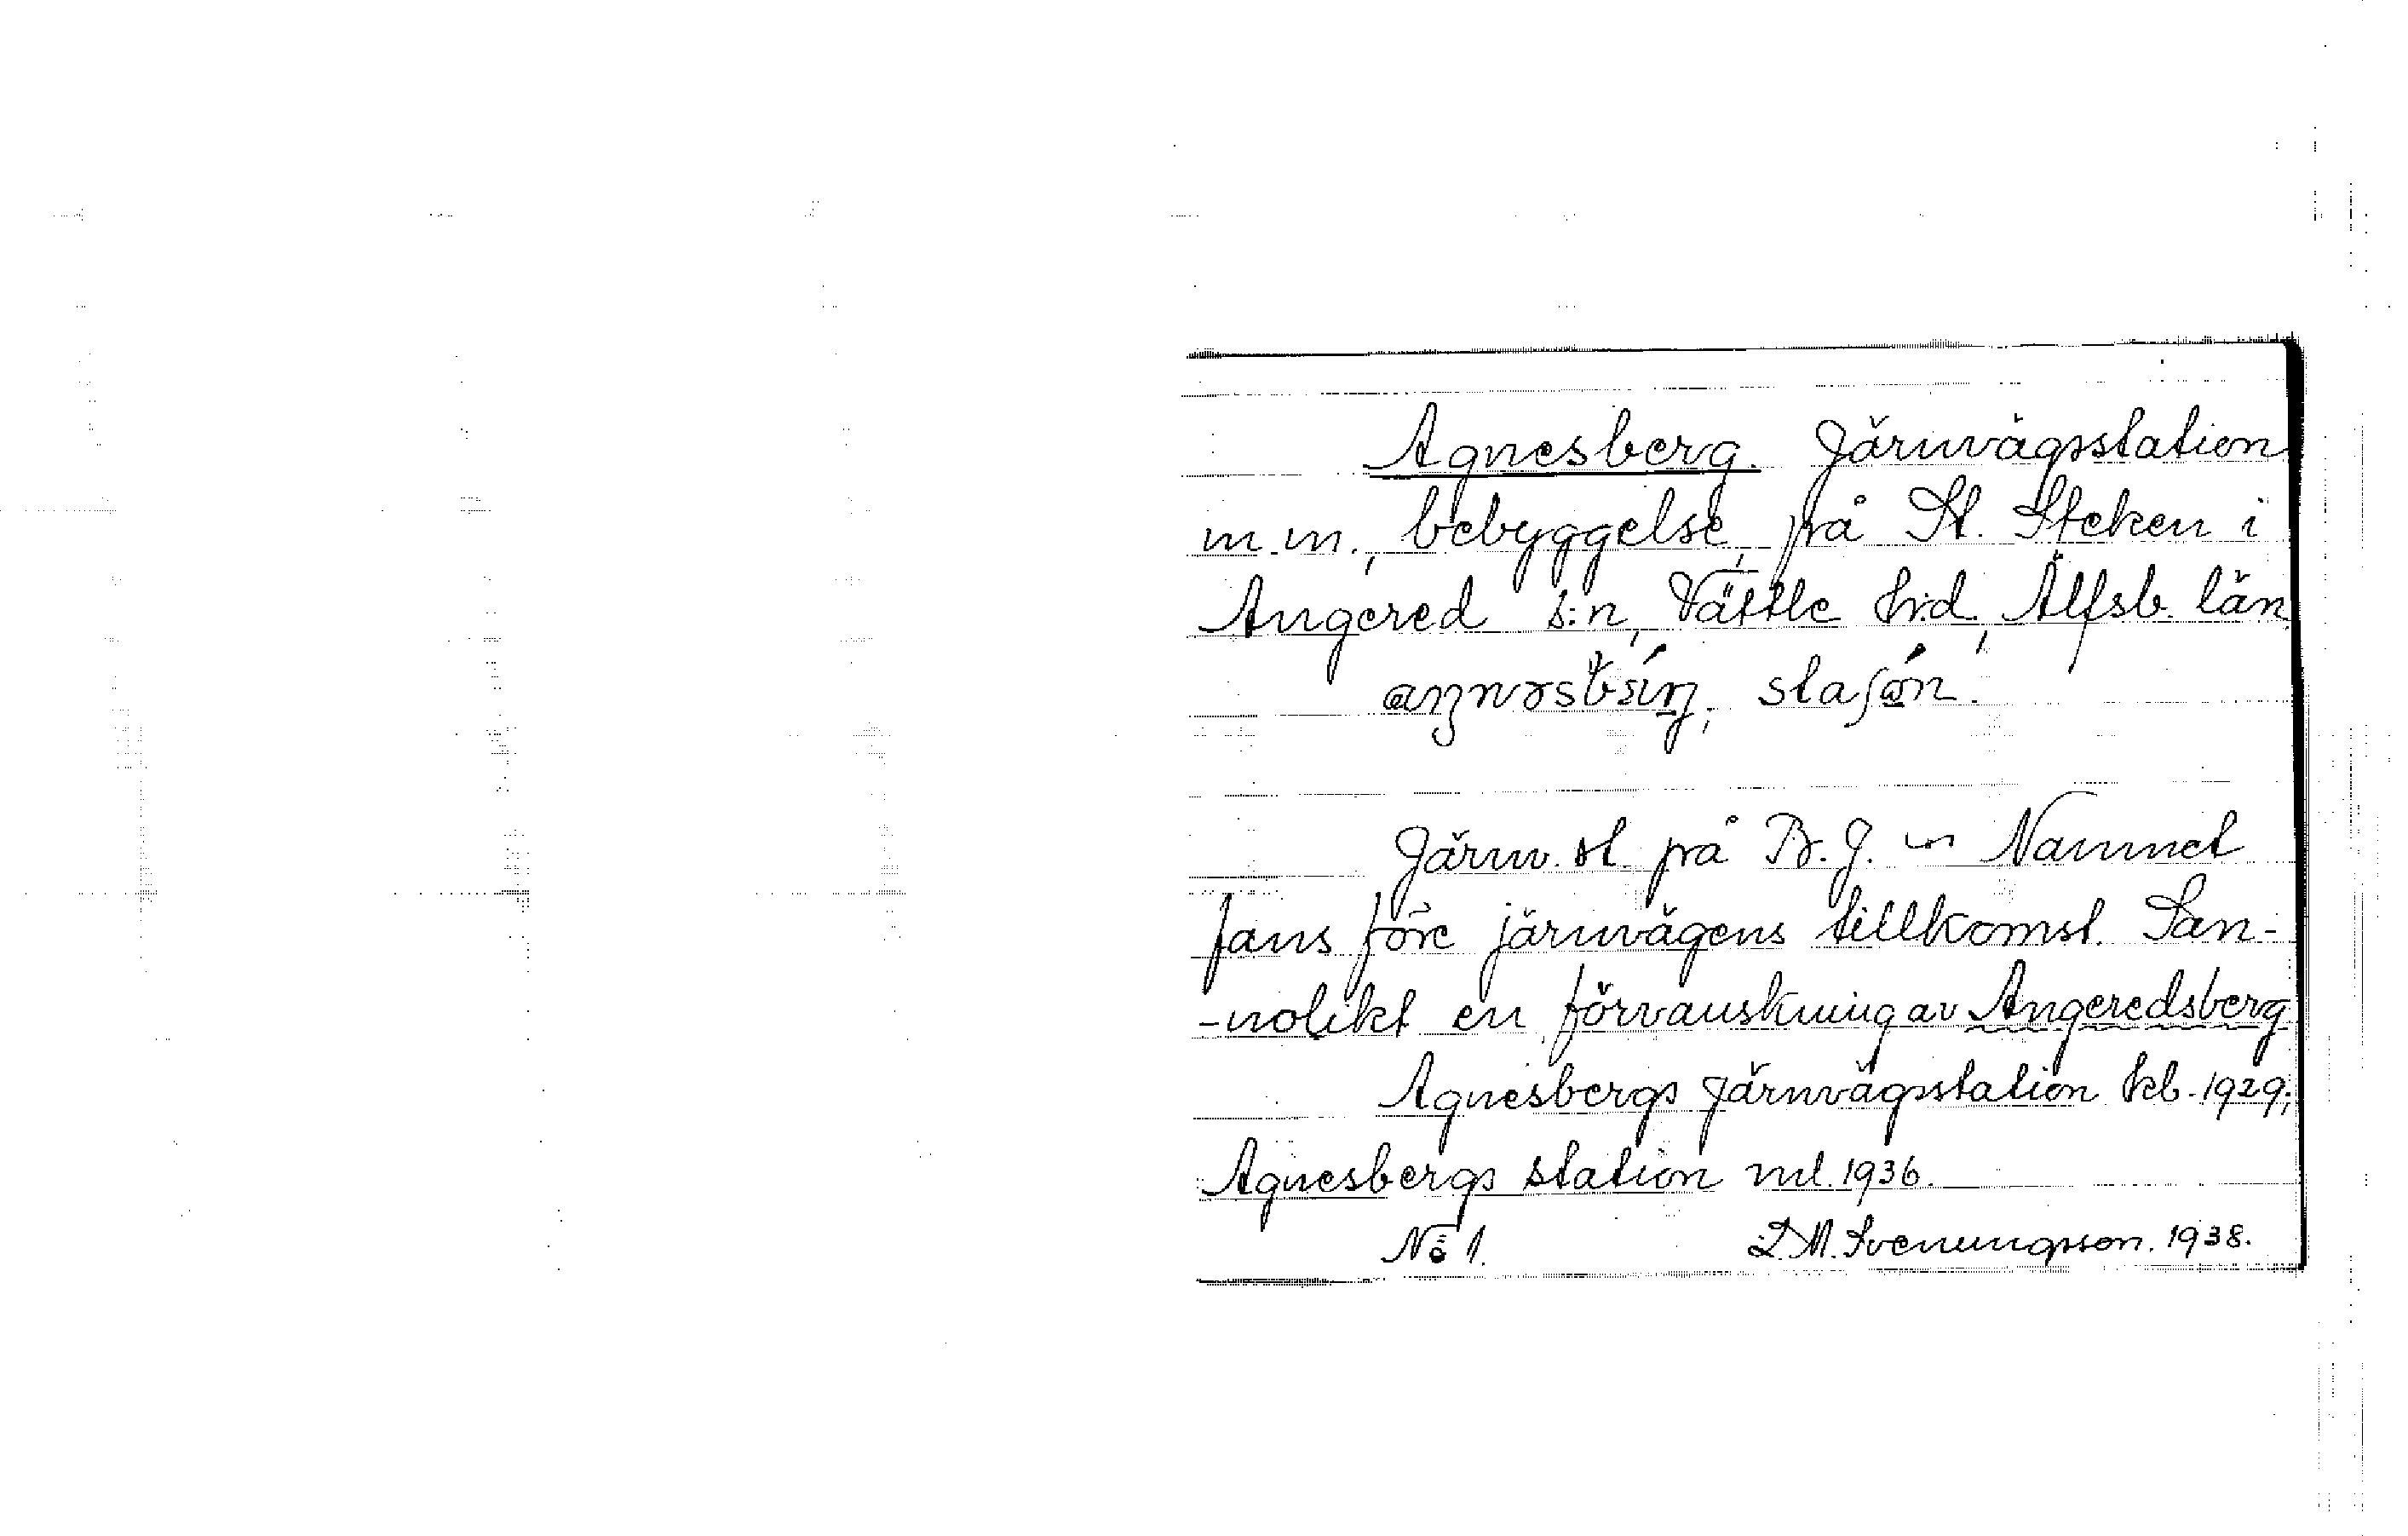 Agnesberg. Järnvägsstation
m.m., bebyggelse, på St. Steken i
Angered s:n, Vättle hrd, Älfsb. län
stasjón.
Järnv. st. på B.J. Namnet
fans före järnvägens tillkomst. San-
-nolikt en förvanskning av Angeredsberg
Agnesbergs Järnvägsstation kb. 1929;
Agnesbergs station ml. 1936.
No 1. L.M. Svenungsson. 1938.